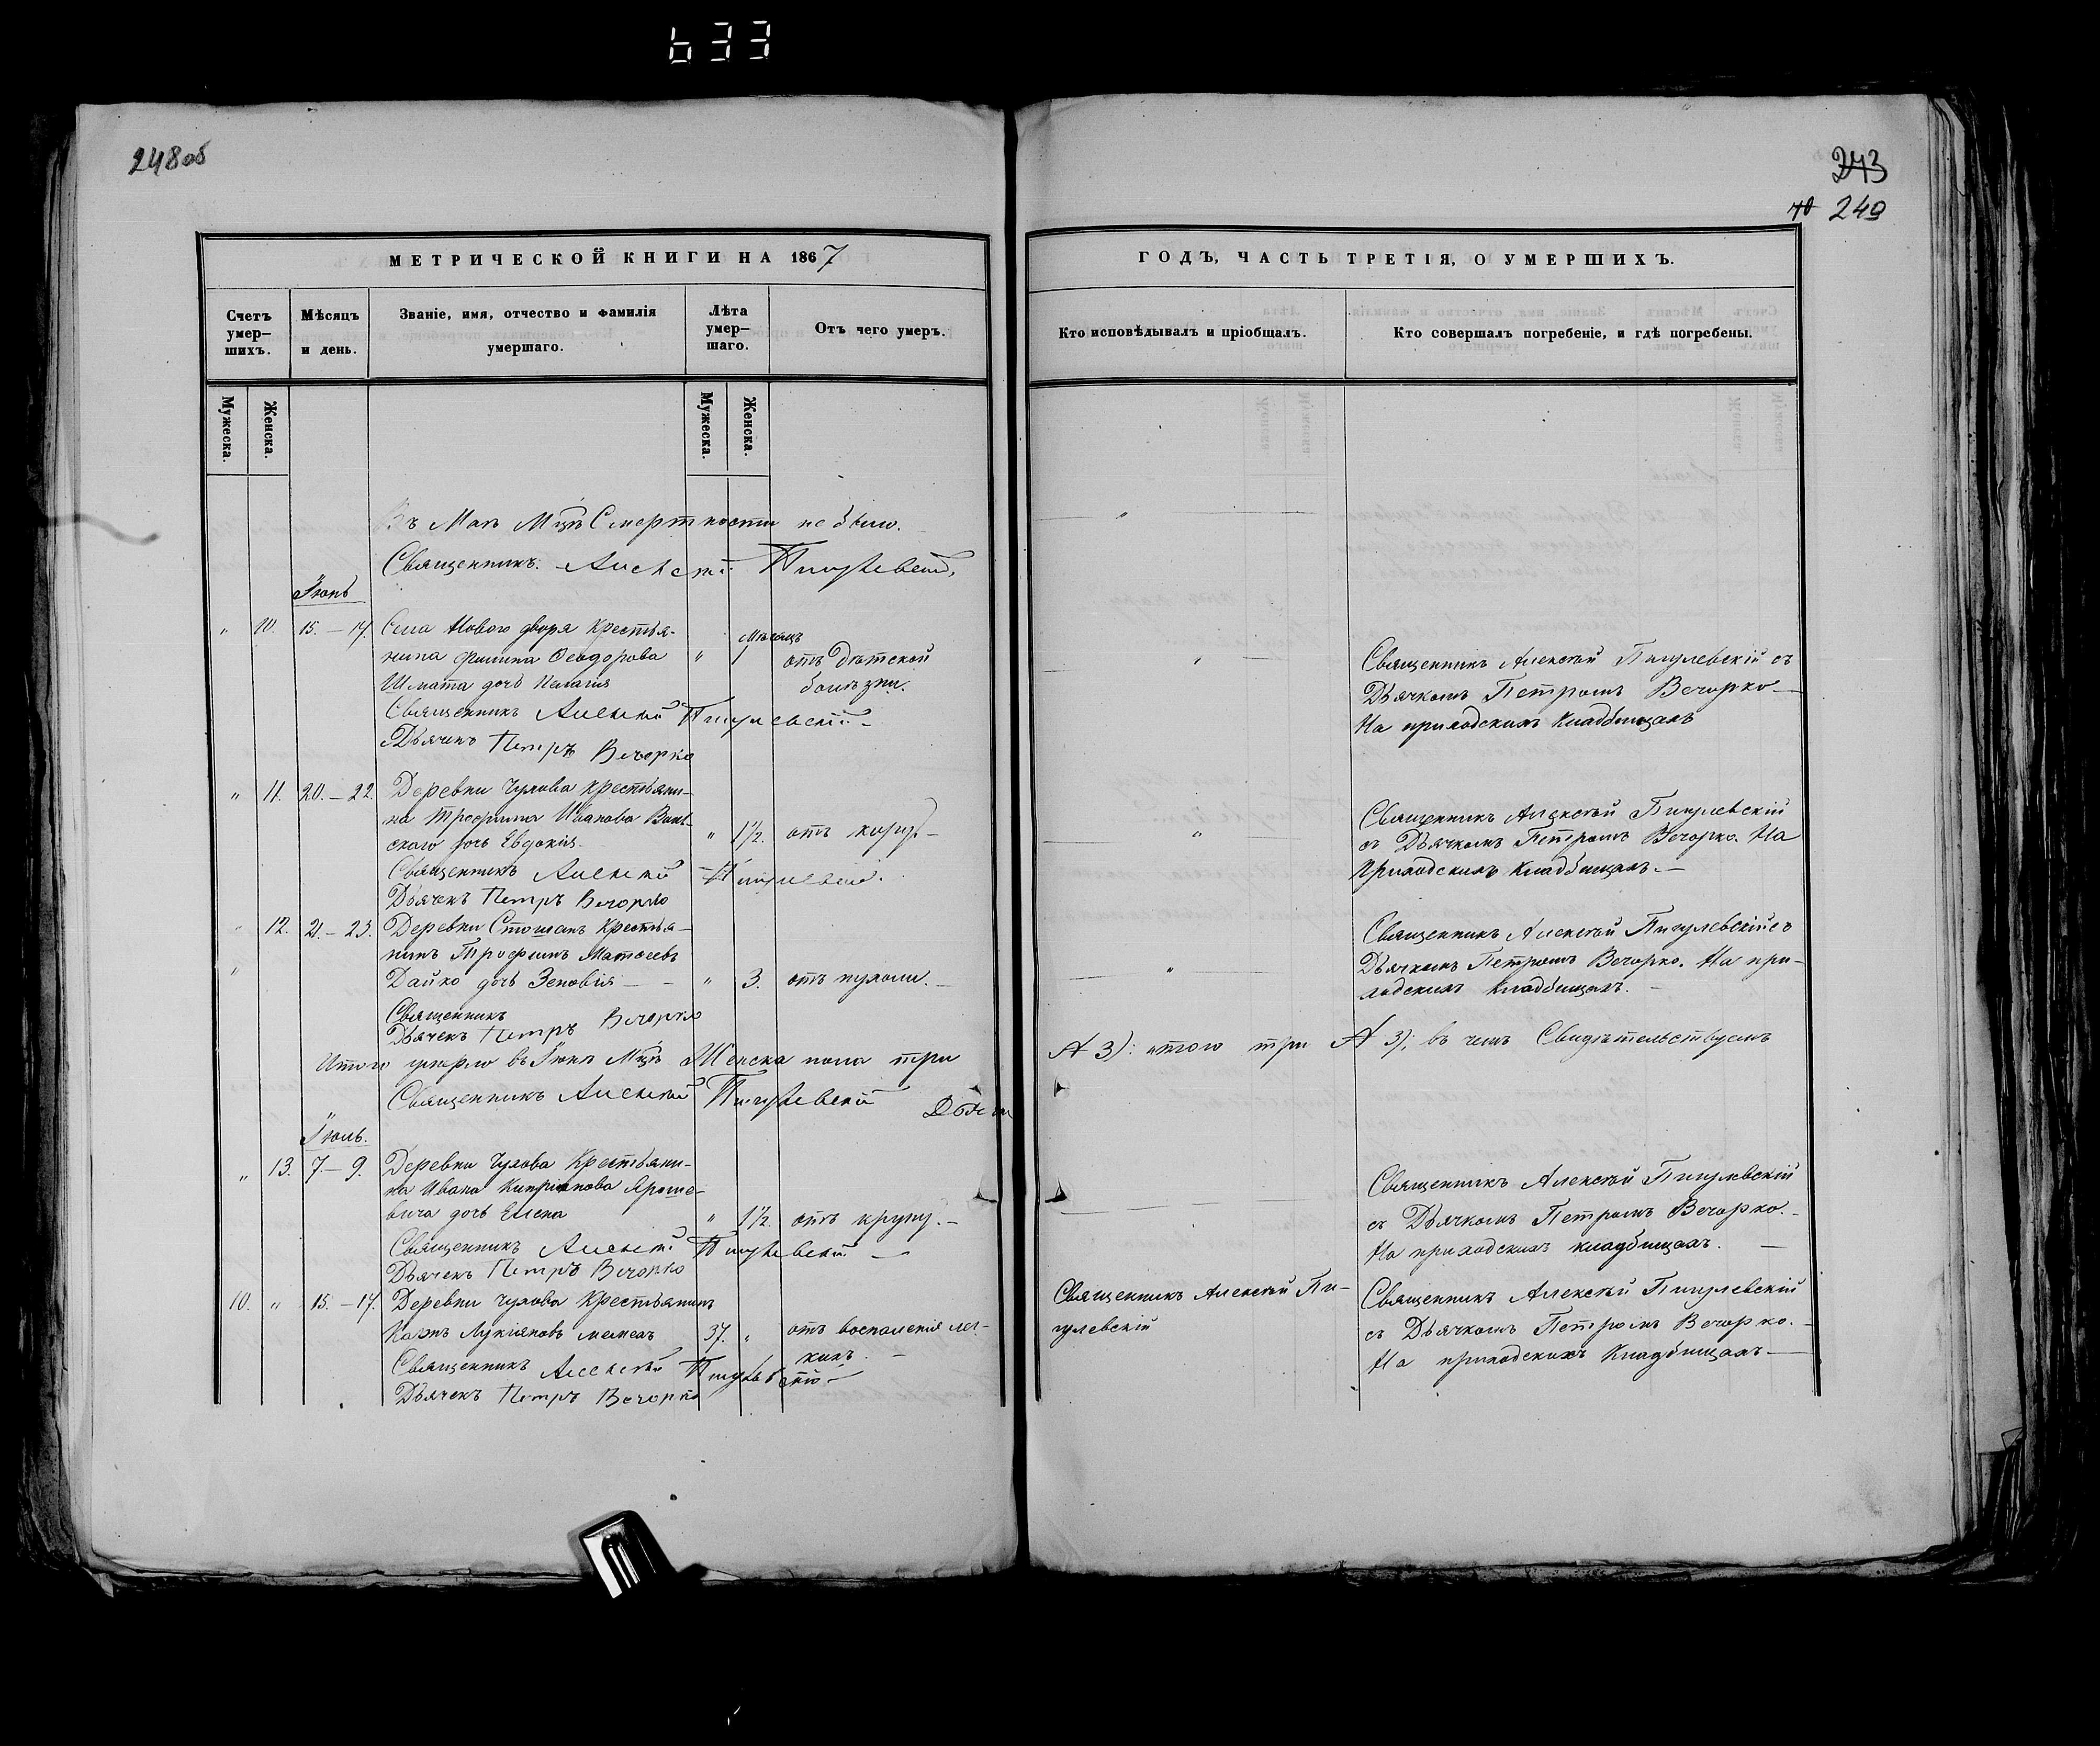 633
248об
243
70 249
МЕТРИЧЕСКОЙ КНИГИ НА 1867
ГОДЪ, ЧАСТЬ ТРЕТІЯ, О УМЕРШИХЪ.
Счетъ умер-шихъ.
Мѣсяцъ и день.
Званіе, имя, отчество и фамилія умершаго.
Лѣта умер-шаго.
Отъ чего умеръ.
Кто исповѣдывалъ и пріобщалъ.
Кто совершалъ погребеніе, и гдѣ погребены.
Мужеска.
Женска.
Мужеска.
Женска.
Въ Маѣ Мцѣ Смертности не было.
Священникъ Алексѣй Пигулевскій
Іюнь
" 10. 15.—17. Села Нового двора Крестья-
нина Филипа Ѳеодорова
Шмата дочь Пелагія
" 1 Мѣсяцъ
отъ Дѣтской
болѣзни.
Священникъ Алексѣй Пигулевскій
Дьячекъ Петръ Вечорко
Священникъ Алексѣй Пигулевскій съ
Дьячкомъ Петромъ Вечорко—
На приходскихъ Кладбищахъ
" 11. 20.—22. Деревни Чухова Крестьяни-
на Трофима Иванова
скаго дочь Евдокія.
" 1½. отъ
Священникъ Алексѣй Пигулевскій
Дьячекъ Петръ Вечорко
Священникъ Алексѣй Пигулевскій
съ Дьячкомъ Петромъ Вечорко. На
Приходскихъ Кладбищахъ.—
" 12. 21.—23. Деревни Крестья-
нинъ Трофимъ Матѳеевъ
Дайко дочь Зеновія—
" 3. отъ
Священникъ
Дьячекъ Петръ Вечорко
Священникъ Алексѣй Пигулевскій съ
Дьячкомъ Петромъ Вечорко. На при-
ходскихъ Кладбищахъ.—
Итого умерло въ Іюнѣ Мцѣ Женска пола три
3): итого три 3); въ чемъ Свидѣтельствуемъ
Священникъ Алексѣй Пигулевскій
Іюль.
" 13. 7.—9. Деревни Чухова Крестьяни-
на Ивана Кипріянова Яроше-
вича дочь Елена
" 1½. отъ крупу.—
Священникъ Алексѣй Пигулевскій—
Дьячекъ Петръ Вечорко
Священникъ Алексѣй Пигулевскій
съ Дьячкомъ Петромъ Вечорко.—
На приходскихъ кладбищахъ.—
10. " 15.—17. Деревни Чухова Крестьянинъ
Лукіяновъ
37. " отъ воспаленія лег-
кихъ.—
Священникъ Алексѣй Пигулевскій—
Дьячекъ Петръ Вечорко
Священникъ Алексѣй Пи-
гулевскій
Священникъ Алексѣй Пигулевскій
съ Дьячкомъ Петромъ Вечорко.—
На приходскихъ Кладбищахъ—